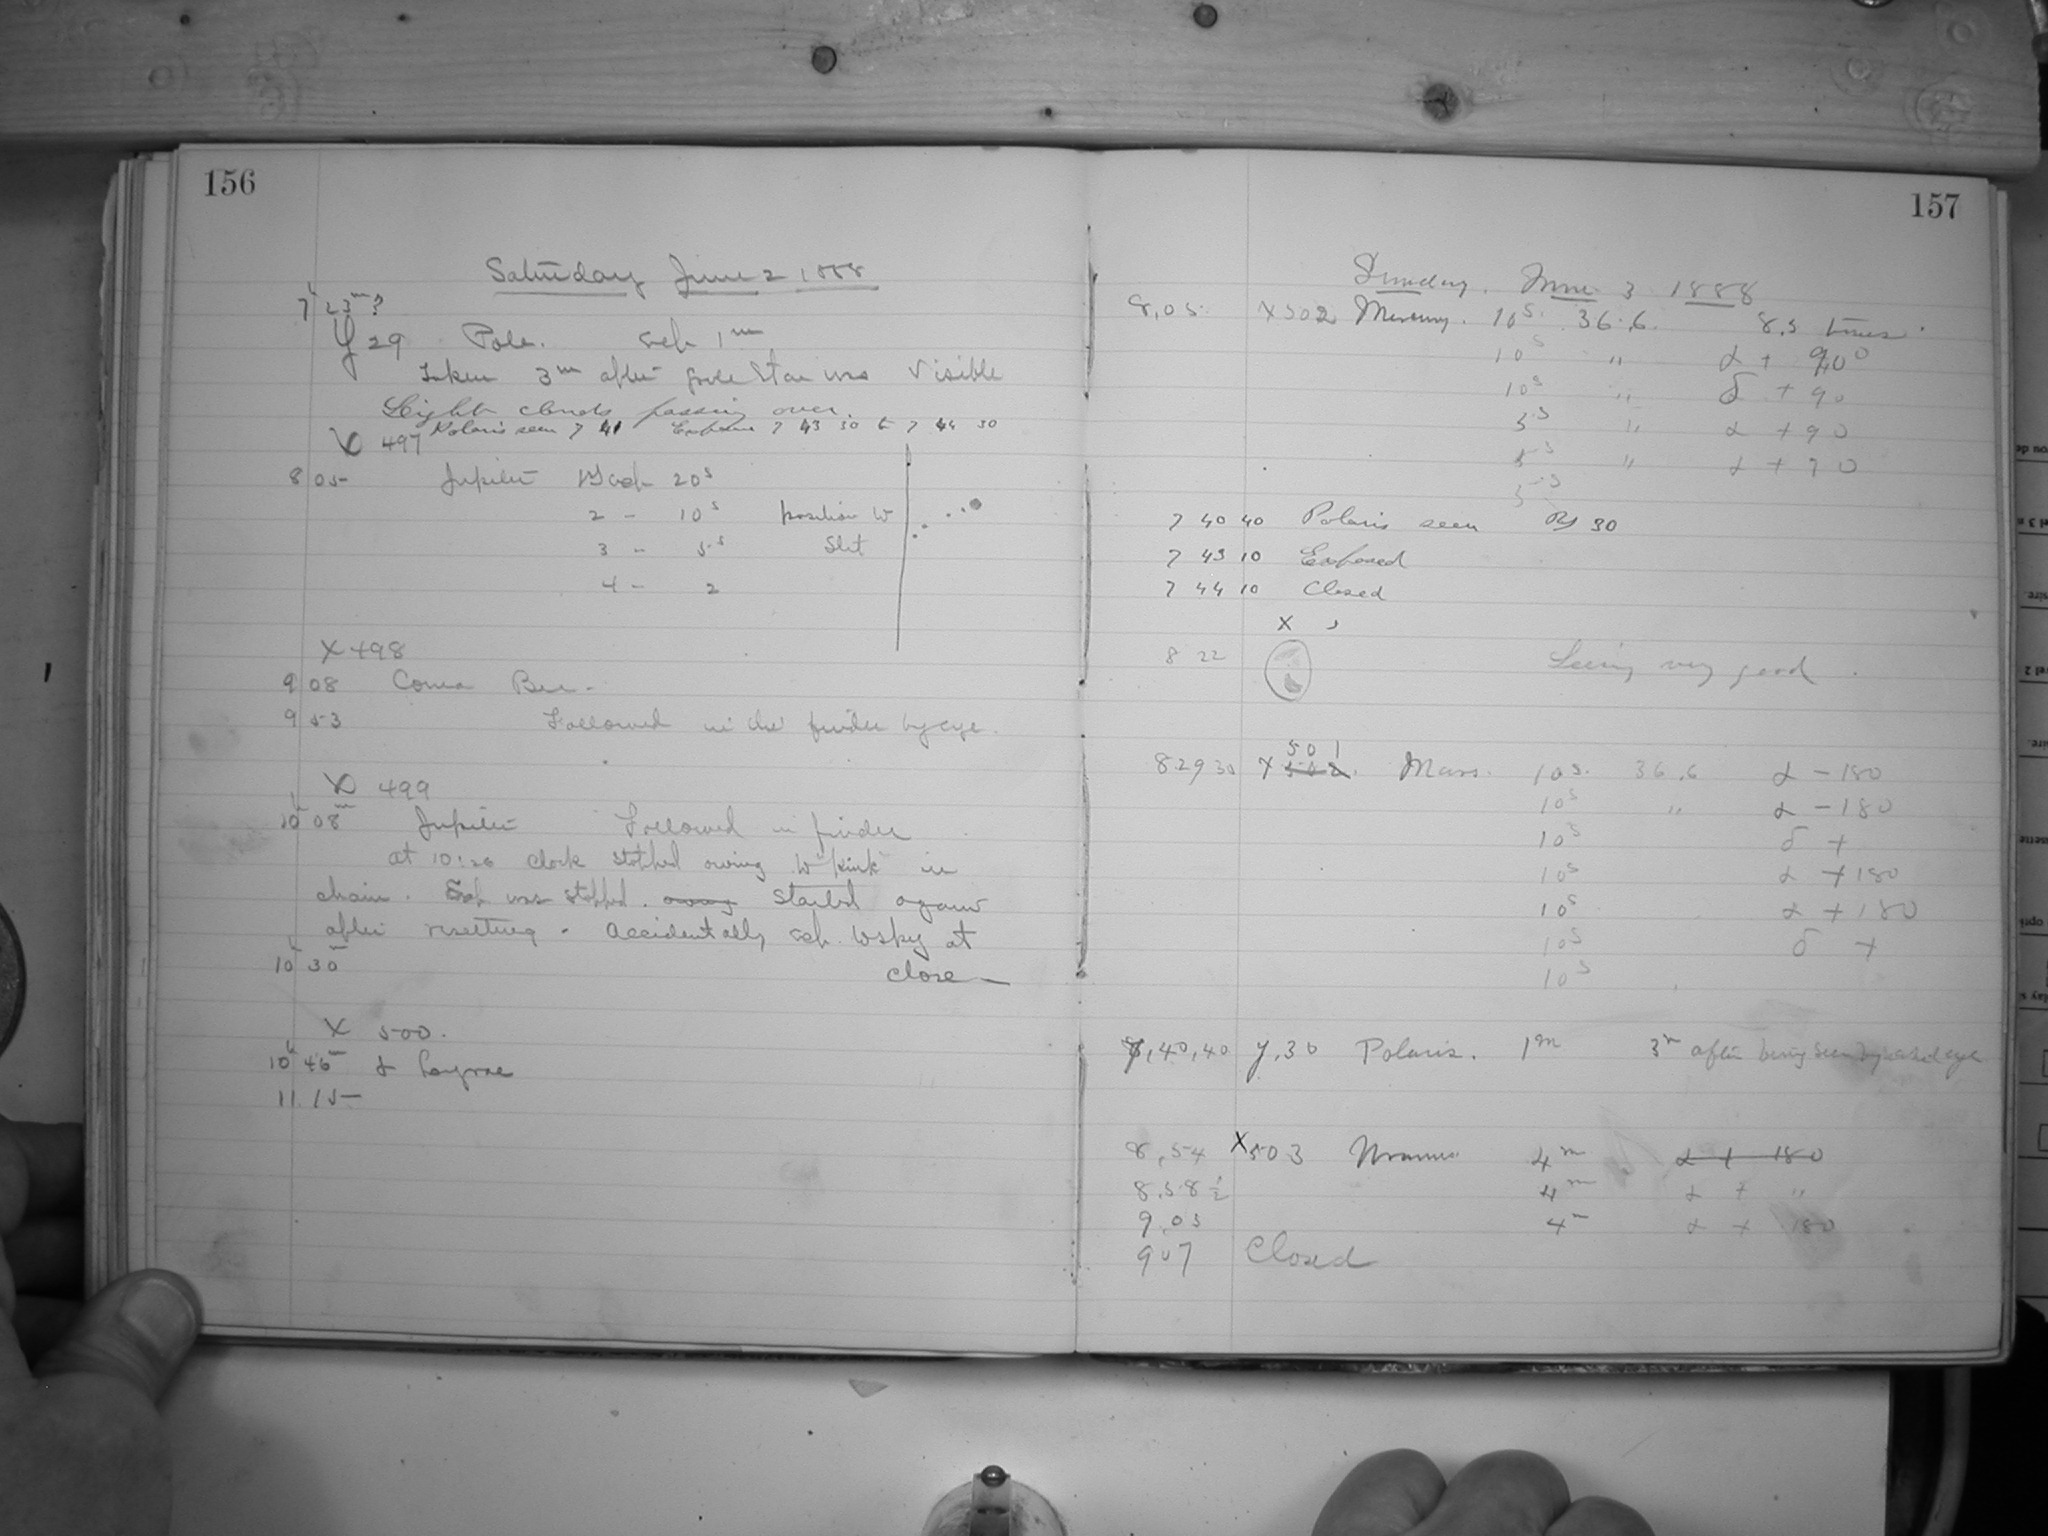 156
Saturday June 2 1888
7h 23m?
Y 29 Pole. exp 1m
Taken 3m after pole star was visible
Light clouds passing over.
Polaris seen 7 41 Exposure 7 43 30 to 7 44 30
X 497
8 05 Jupiter exp 20s
2 - 10s position W
3 - 5s Slit
4 - 2
X 498
9 08 Coma Ber.
9 53 Followed in the finder by eye.
X 499
10h 08m Jupiter Followed in finder
at 10:26 clock stopped owing to "kink" in
chain. Exp. was stopped. owing Started again
after resetting. Accidentally exp. to sky at
10h 30m close
X 500.
10h 46m α Lyrae
11 15
157
Sunday. June 3 1888
8,05. X502 Mercury. 10s. 36.6. 8.5 times.
10s " α + 90°
10s " δ + 90
5s " α + 90
5s " α + 90
5s
7 40 40 Polaris seen 30
7 43 10 Exposed
7 44 10 Closed
X
8 22 Seeing very good.
501
8 29 30 X 502. Mars. 10s. 36.6 α - 180
10s " α - 180
10s δ +
10s α + 180
10s α + 180
10s δ +
10s
7,40,40 Y,30 Polaris. 1m 3m after being seen by naked eye
8,54 X503 Uranus 4m α + 180
8.58½ 4m α + "
9.03 4m α + 180
9 07 Closed